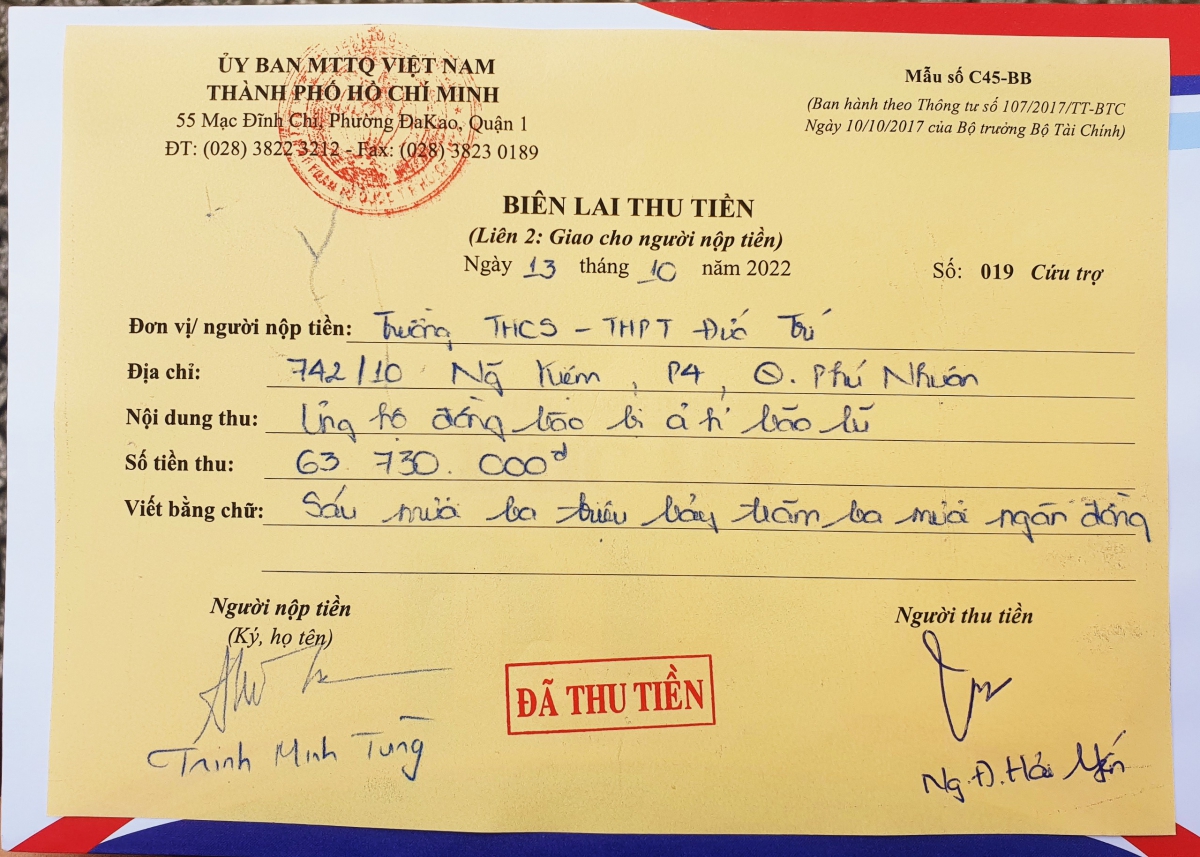 ỦY BAN MTTQ VIỆT NAM
THÀNH PHỐ HỒ CHÍ MINH
55 Mạc Đĩnh Chi, Phường ĐaKao, Quận 1
ĐT: (028) 3822 3212 - Fax: (028) 3823 0189
Mẫu số C45-BB
(Ban hành theo Thông tư số 107/2017/TT-BTC
Ngày 10/10/2017 của Bộ trưởng Bộ Tài Chính)
BIÊN LAI THU TIỀN
(Liên 2: Giao cho người nộp tiền)
Ngày 13 tháng 10 năm 2022
Số: 019 Cứu trợ
Đơn vị/ người nộp tiền: Trường THCS - THPT Đức Trí
Địa chỉ: 742/10 Ng~ Kiệm, P4, Q. Phú Nhuận
Nội dung thu: Ủng hộ đồng bào bị ả h' bão lũ
Số tiền thu: 63.730.000đ
Viết bằng chữ: Sáu mươi ba triệu bảy trăm ba mươi ngàn đồng
Người nộp tiền
(Ký, họ tên)
Người thu tiền
ĐÃ THU TIỀN
Trịnh Minh Tùng
Ng.Đ.Hải Yến